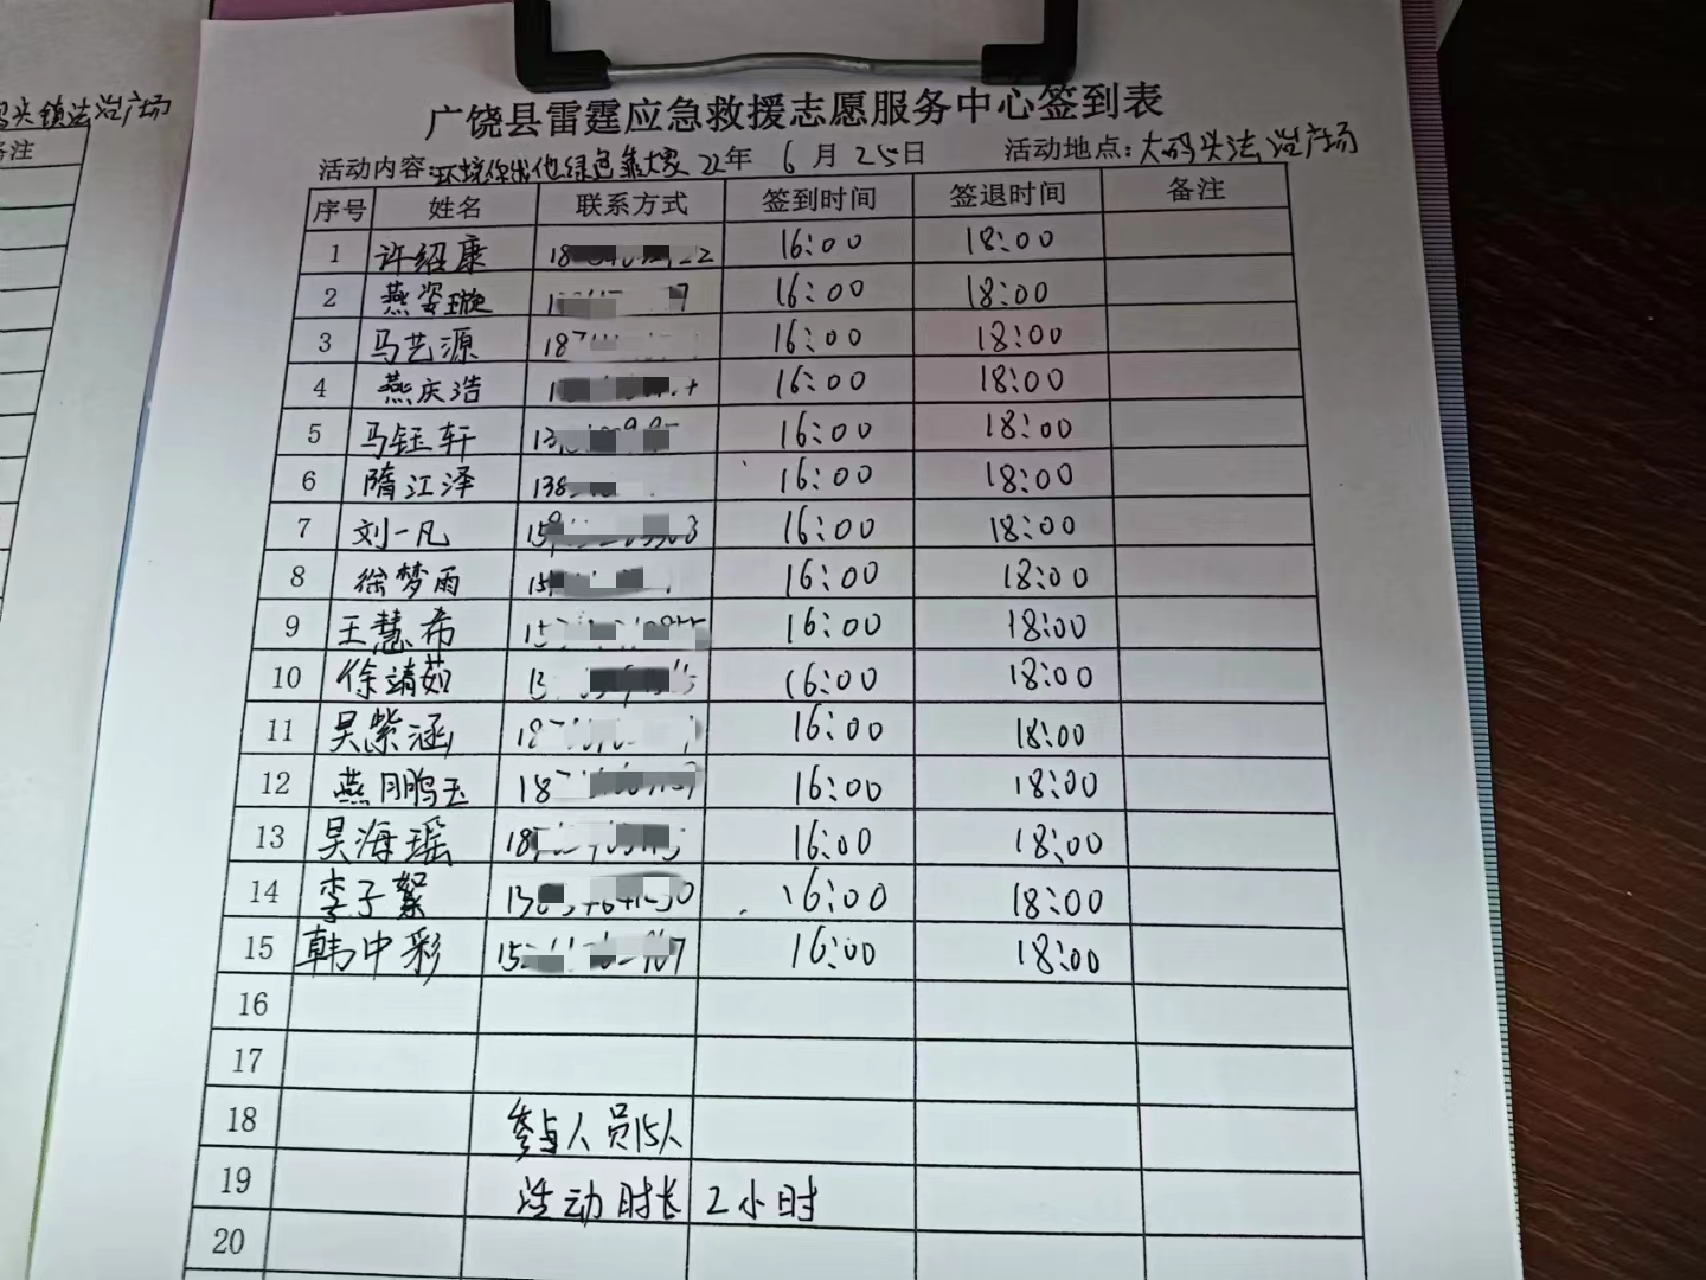 码头镇法治广场
备注
广饶县雷霆应急救援志愿服务中心签到表
活动内容:环境你我他绿色靠大家 22年 6 月 25日 活动地点:大码头法治广场
序号 姓名 联系方式 签到时间 签退时间 备注
1 许绍康 16:00 18:00
2 燕姿璇 16:00 18:00
3 马艺源 16:00 18:00
4 燕庆浩 16:00 18:00
5 马钰轩 16:00 18:00
6 隋江泽 16:00 18:00
7 刘一凡 16:00 18:00
8 徐梦雨 16:00 18:00
9 王慧希 16:00 18:00
10 徐靖茹 16:00 18:00
11 吴紫涵 16:00 18:00
12 燕鹏玉 16:00 18:00
13 吴海瑶 16:00 18:00
14 李子絮 16:00 18:00
15 韩中彩 16:00 18:00
16
17
18 参与人员15人
19 活动时长 2小时
20